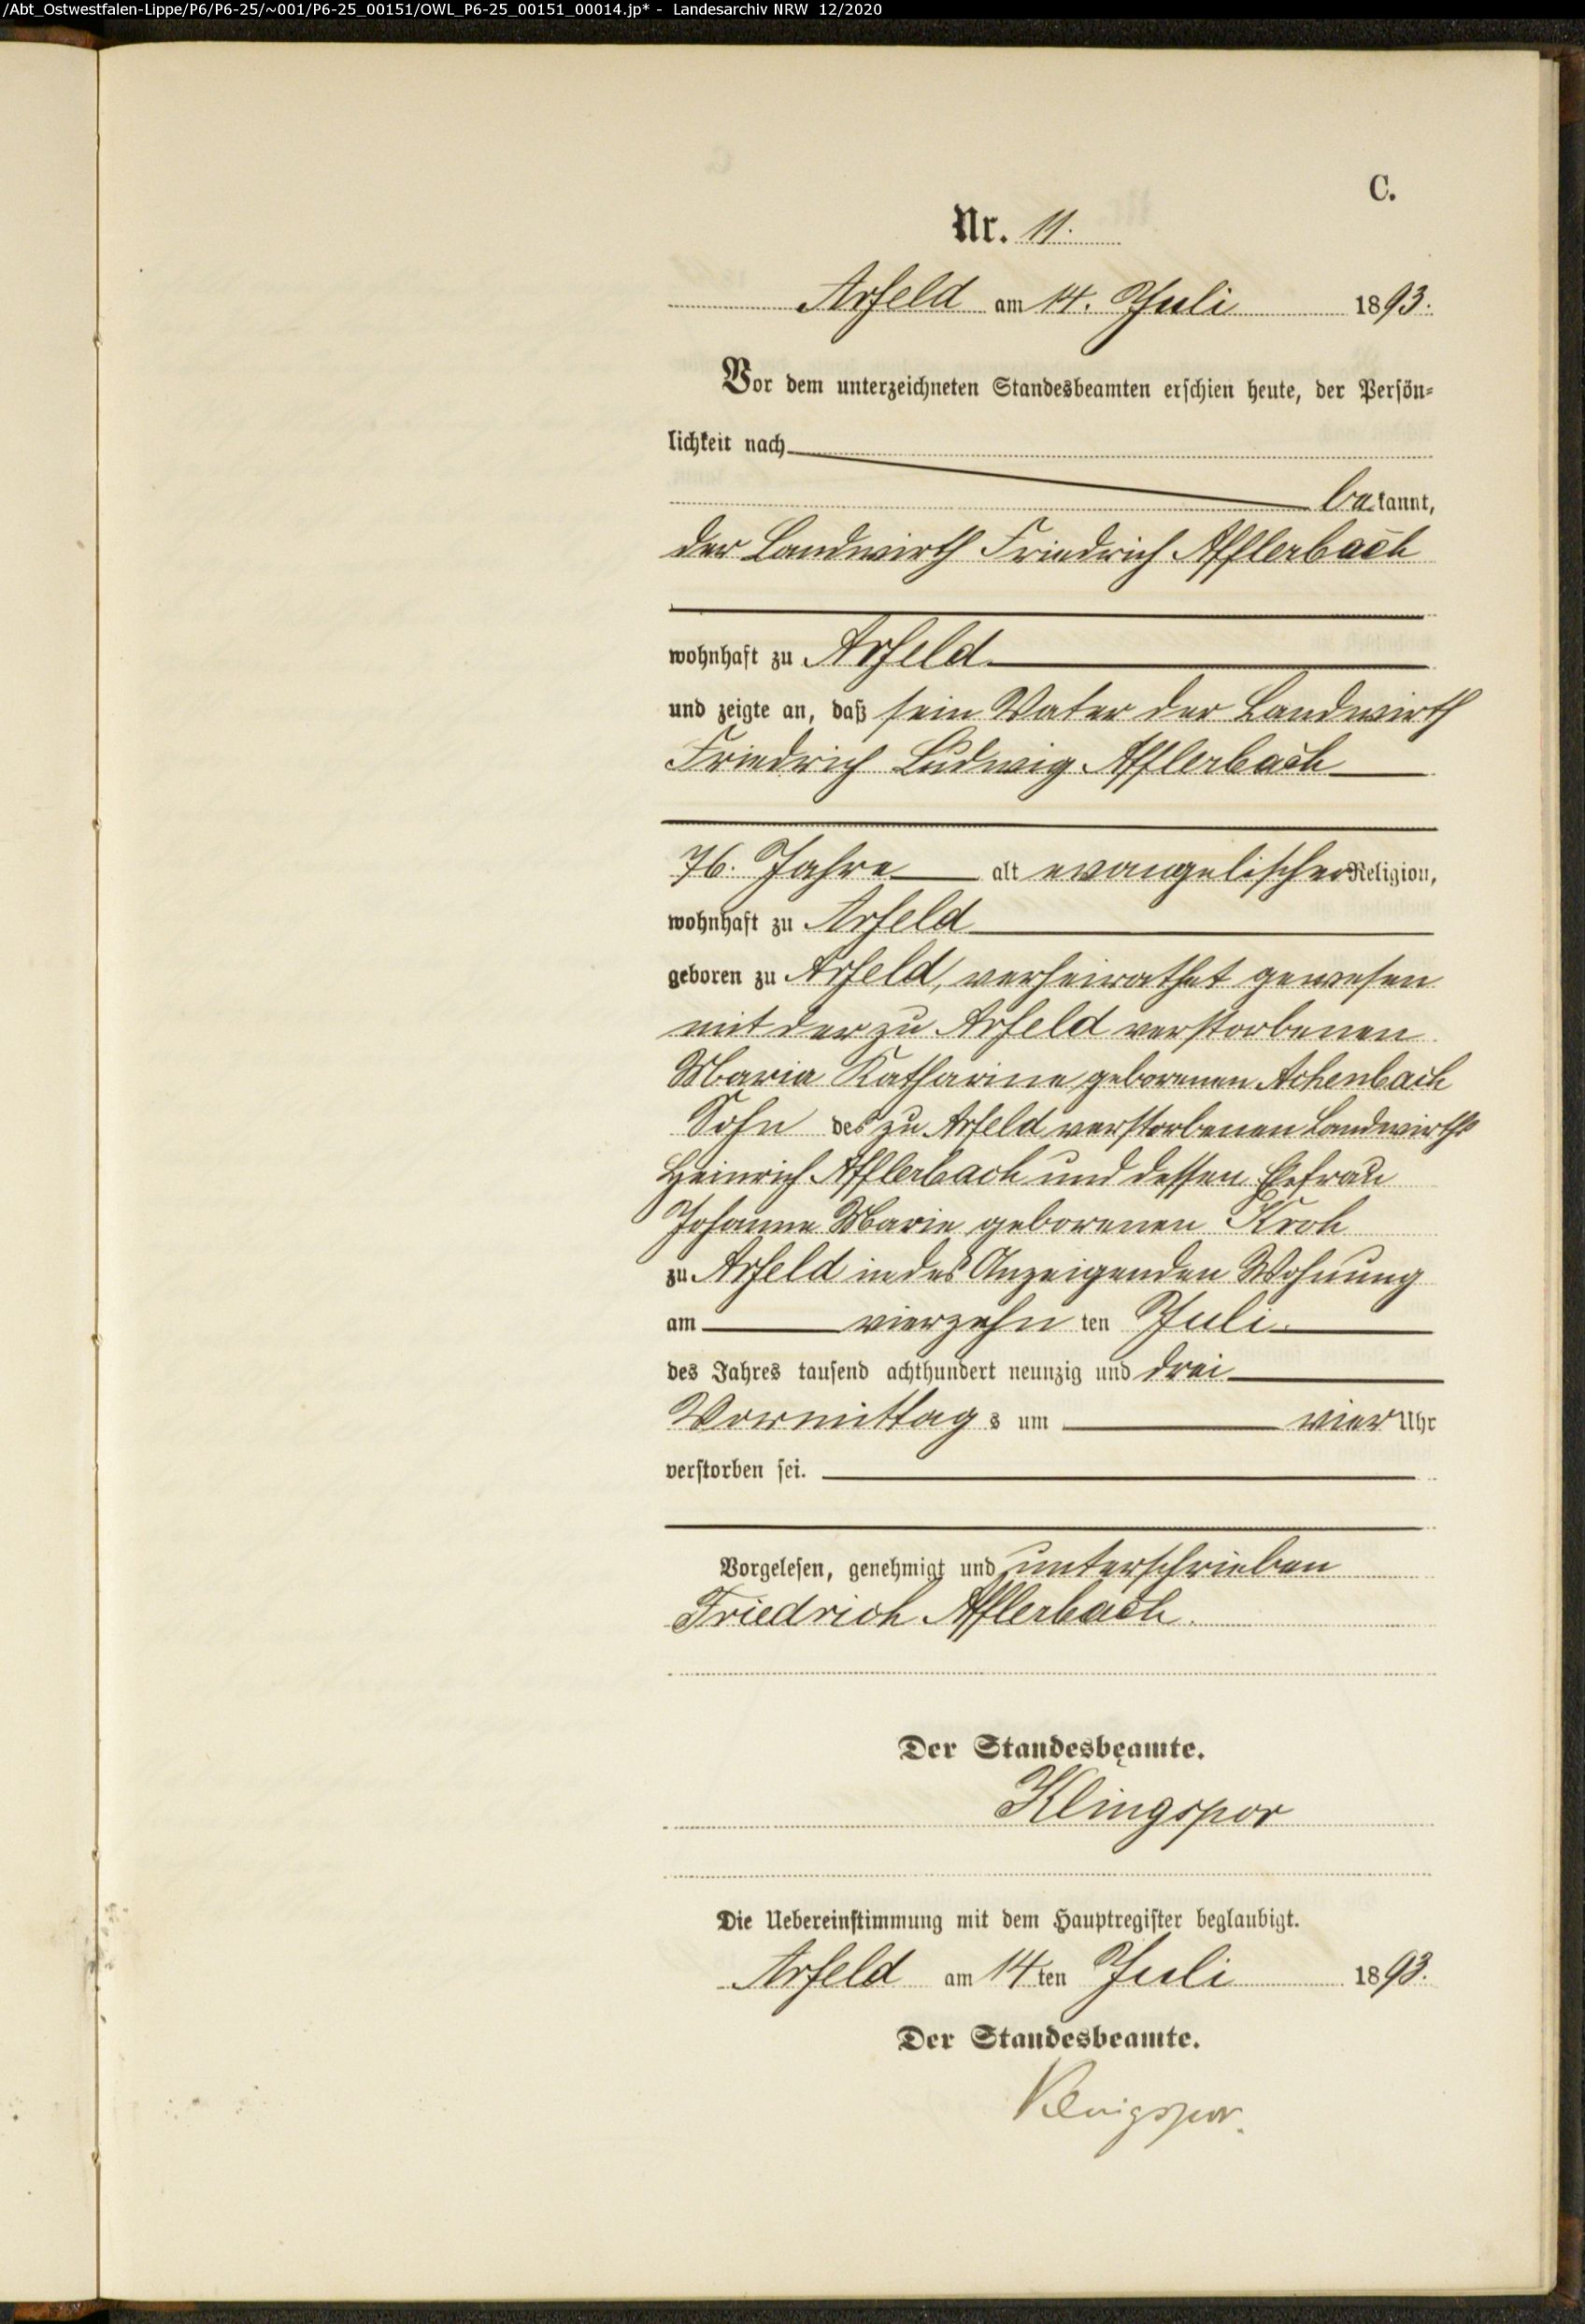 /Abt_Ostwestfalen-Lippe/P6/P6-25/~001/P6-25_00151/OWL_P6-25_00151_00014.jp* - Landesarchiv NRW 12/2020
C.
Nr. 11.
Arfeld am 14. Juli 1893.
Vor dem unterzeichneten Standesbeamten erschien heute, der Persön-
lichkeit nach
bekannt,
der Landwirth Friedrich Afflerbach
wohnhaft zu Arfeld
und zeigte an, daß sein Vater der Landwirth
Friedrich Ludwig Afflerbach
76. Jahre alt evangelischer Religion,
wohnhaft zu Arfeld
geboren zu Arfeld, verheirathet gewesen
mit der zu Arfeld verstorbenen
Maria Katharine geborenen Achenbach
Sohn des zu Arfeld verstorbenen Landwirths
Heinrich Afflerbach und dessen Ehefrau
Johanne Marie geborenen Kroh
zu Arfeld in des Anzeigenden Wohnung
am vierzehn ten Juli
des Jahres tausend achthundert neunzig und drei
Vormittags um vier Uhr
verstorben sei.
Vorgelesen, genehmigt und unterschrieben
Friedrich Afflerbach.
Der Standesbeamte.
Klingspor
Die Uebereinstimmung mit dem Hauptregister beglaubigt.
Arfeld am 14ten Juli 1893.
Der Standesbeamte.
Klingspor.